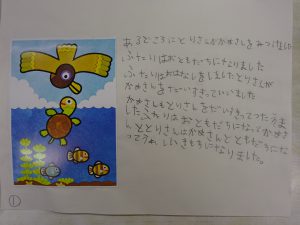 あるどころにとりさんがかめさんをみつけました
ふたりはおともだちになりました
ふたりはおはなしをしましたとりさんが
かめさんをだいすきっていいました
かめさんもとりさんをだいすきってったいま
したふたりはおともだちになってかめさ
んととりさんはかめさんとともだちにな
ってうれしいきもちになりました。
①